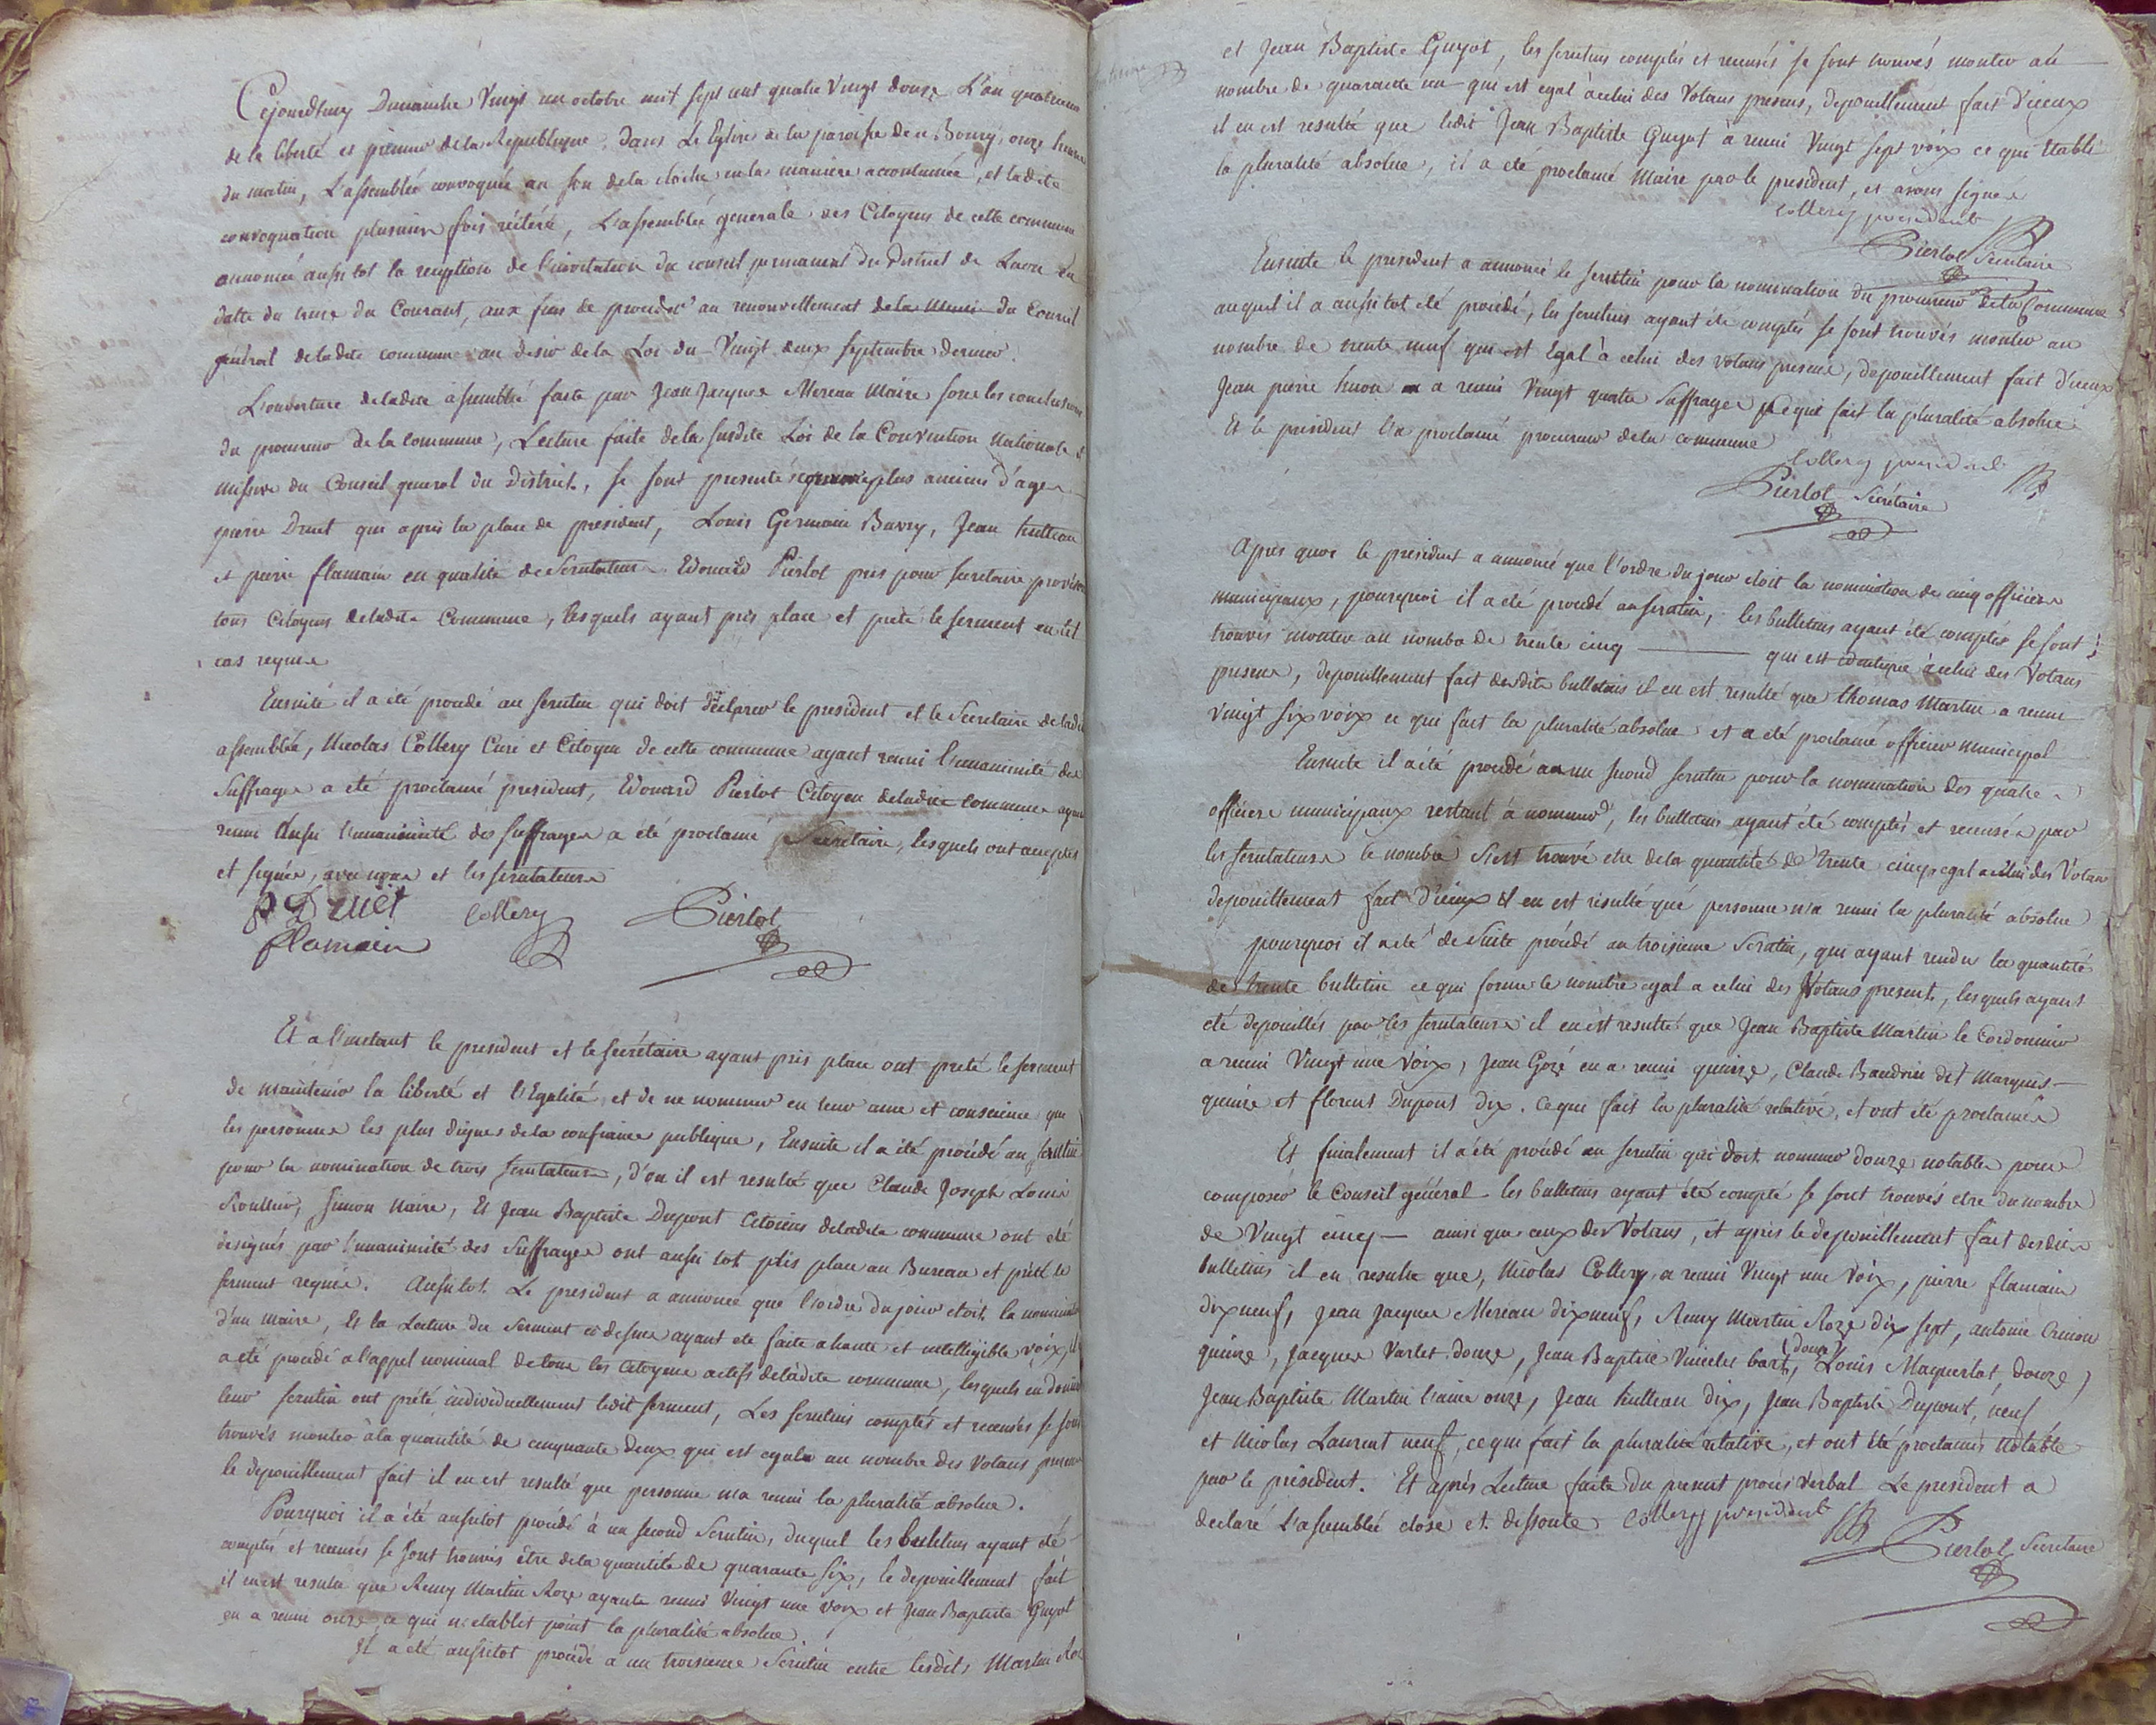 Cejourdhuy Dimanche Vingt un octobre mil sept cent quatre Vingt douze L'an quatrieme
de la liberté et premier de la Republique, dans L'Eglise de la paroisse de Boury, onze heures
du matin, L'assemblée convoquée au son de la cloche en la maniere accoutumée, et ladite
convoquation plusieurs fois réitéré, L'assemblée generale des Citoyens de cette commune
annoncée aussitot la reception de l'invitation du conseil permanent du District de Laon en
datte du treize du Courant, aux fins de proceder au renouvellement de la Muni du Conseil
général de ladite commune au desir de la Loi du Vingt deux septembre dernier.
L'ouverture de ladite assemblée faite par Jean Jacques Mereau Maire sous les conclusions
du procureur de la Commune, Lecture faite de la susdite Loi de la Convention Nationale et
missive du Conseil general du District, se sont presentés plus anciens d'ages
pierre Druet qui a pris la place de president, Louis Germain Bavry, Jean hutteau
et pierre flamain en qualité de Scrutateurs Edouard Pierlot pris pour secretaire provisoire
tous Citoyens de ladite Commune, lesquels ayant pris place et preté le serment en tel
cas requis
Ensuite il a été procedé au scrutin qui doit déclarer le president et le Secretaire de ladite
assemblée, Nicolas Collery Curé et Citoyen de cette commune ayant reuni l'unanimité des
Suffrages a été proclamé president, Edouard Pierlot Citoyen de ladite commune ayant
reuni Aussi l'unanimité des suffrages a été proclamé Secretaire, lesquels ont acceptés
et signés, avec nous et les scrutateurs
P Druet Collery Pierlot
flamain
Et a l'instant le president et le secrétaire ayant pris place ont preté le serment
de maintenir la liberté et l'Egalité et de ne nommer en leur ame et conscience que
les personnes les plus dignes de la confiance publique, Ensuite il a été procédé au scrutin
pour la nomination de trois scrutateurs, d'ou il est resulté que Claude Joseph Louis
Roullier, Simon Naire, Et Jean Baptiste Dupont Citoiens de ladite commune ont été
designés par l'unanimité des Suffrages ont aussi tot pris place au Bureau et prété le
serment requis. Aussitot Le president a annoncé que l'ordre du jour etoit la nomination
d'un maire, Et la Lecture du Serment ci dessus ayant eté faite a haute et intelligible voix, il
a été procedé a l'appel nominal de tous les Citoyens actifs de ladite commune, lesquels en donnant
leur scrutin ont prété individuellement ledit serment, Les scrutins comptés et recensés se sont
trouvés monter à la quantité de cinquante deux qui est egale au nombre des Votans presens
le depouillement fait il en est resulté que personne n'a reuni la pluralité absolue.
Pourquoi il a été aussitot procédé à un second Scrutin, duquel les bulletins ayant été
comptés et recensés se sont trouvés être de la quantité de quarante six, le depouillement fait
il en est resulté que Remy Martin Roze ayant reuni Vingt une voix et Jean Baptiste Guyot
en a reuni onze ce qui n'etablit point la pluralité absolue
Il a été aussitot procédé a un troisieme Scrutin entre lesdits Martin Roze
et Jean Baptiste Guyot, les scrutins comptés et recensés se sont trouvés monter au
nombre de quarante un qui est egal à celui des Votans presens, depouillement fait d'iceux
il en est resulté que ledit Jean Baptiste Guyot à reuni Vingt sept voix ce qui Etablit
la pluralité absolue, il a été proclamé Maire par le president, et avons signés
Collery president
Pierlot Secretaire
Ensuite le president a annoncé le scrutin pour la nomination du procureur de la Commune
auquel il a aussitot été procédé, les scrutins ayant été comptés se sont trouvés monter au
nombre de trente neuf qui est Egal à celui des votans presens, depouillement fait d'iceux
Jean pierre huon a reuni Vingt quatre Suffrages ce qui fait la pluralité absolue
Et le president l'a proclamé procureur de la commune
Collery president
Pierlot Secrétaire
Apres quoi le president a annoncé que l'ordre du jour etoit la nomination de cinq officiers
municipaux, pourquoi il a été procédé au scrutin, les bulletins ayant été comptés se sont
trouvés monter au nombre de trente cinq qui est identique à celui des Votans
presens, depouillement fait desdits bulletins il en est resulté que thomas Martin a reuni
Vingt six voix ce qui fait la pluralité absolue et a été proclamé officier municipal
Ensuite il a été procédé a un second scrutin pour la nomination des quatre
officiers municipaux restant à nommer, les bulletins ayant été comptés et recensés par
les scrutateurs le nombre s'est trouvé etre de la quantité de trente cinq egal a celui des Votans
depouillement fait d'iceux il en est résulté que personne n'a reuni la pluralité absolue
pourquoi il a été de Suite procédé au troisieme Scrutin, qui ayant rendu la quantité
de trente bulletins ce qui forme le nombre egal a celui des Votans presents, lesquels ayant
été depouillés par les scrutateurs il en est resulté que Jean Baptiste Martin le Cordonnier
a reuni Vingt une voix, Jean Gozé en a reuni quinze, Claude Baudouin dit Marquis
quinze et florent Dupont dix. Ce qui fait la pluralité relative, et ont été proclamés
Et finalement il a été procédé au scrutin qui doit nommer douze notables pour
composer le Conseil général les bulletins ayant été compté se sont trouvés etre du nombre
de Vingt cinq ainsi que ceux des Votans, et après le depouillement fait desdits
bulletins il en resulte que, Nicolas Collery a reuni Vingt une Voix, pierre flamain
dix neuf, Jean Jacques Mereau dix neuf, Remy Martin Roze dix sept, antoine Crinon
quinze, Jacques Varlet douze, Jean Baptiste bart, (douze) Louis Maquerlot, douze,
Jean Baptiste Martin l'ainé onze, Jean hutteau dix, Jean Baptiste Dupont, neuf
et Nicolas Laurent neuf, ce qui fait la pluralité relative, et ont été proclamés Notable
par le président. Et après Lecture faite du present proces verbal Le president a
declaré L'assemblée close et dissoute Collery president
Pierlot Secretaire